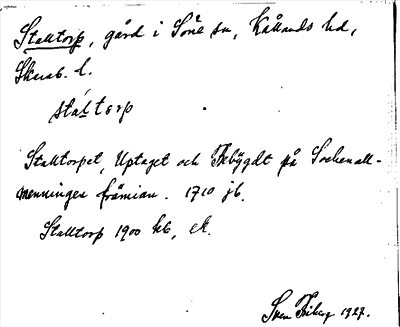 Stalltorp, gård i Söne sn, Kållands hd,
Skarab. l.
stáltorp
Stalltorpet, Uptaget och Bebÿgdt på Sockenall-
menningen främian. 1710 jb.
Stalltorp 1900 kb, ek.
Sven Friberg 1927.